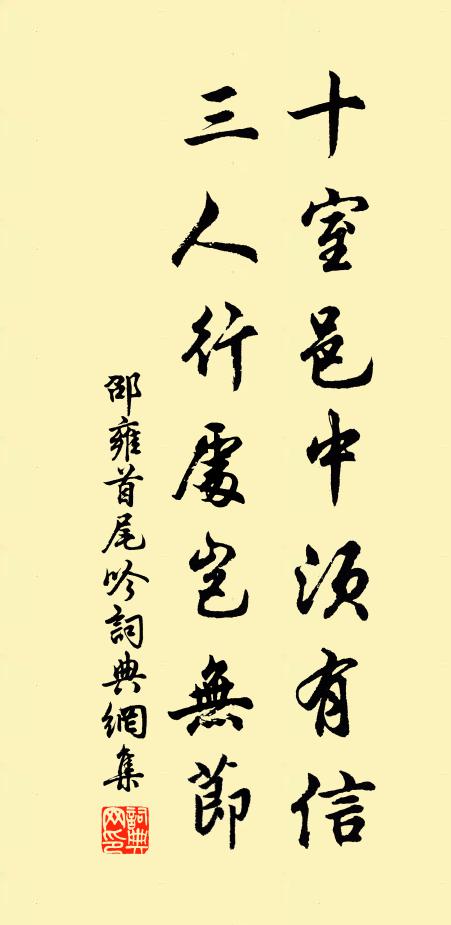 十室邑中須有信
三人行處豈無節
邵雍首尾吟詞典網集
詞典
网印